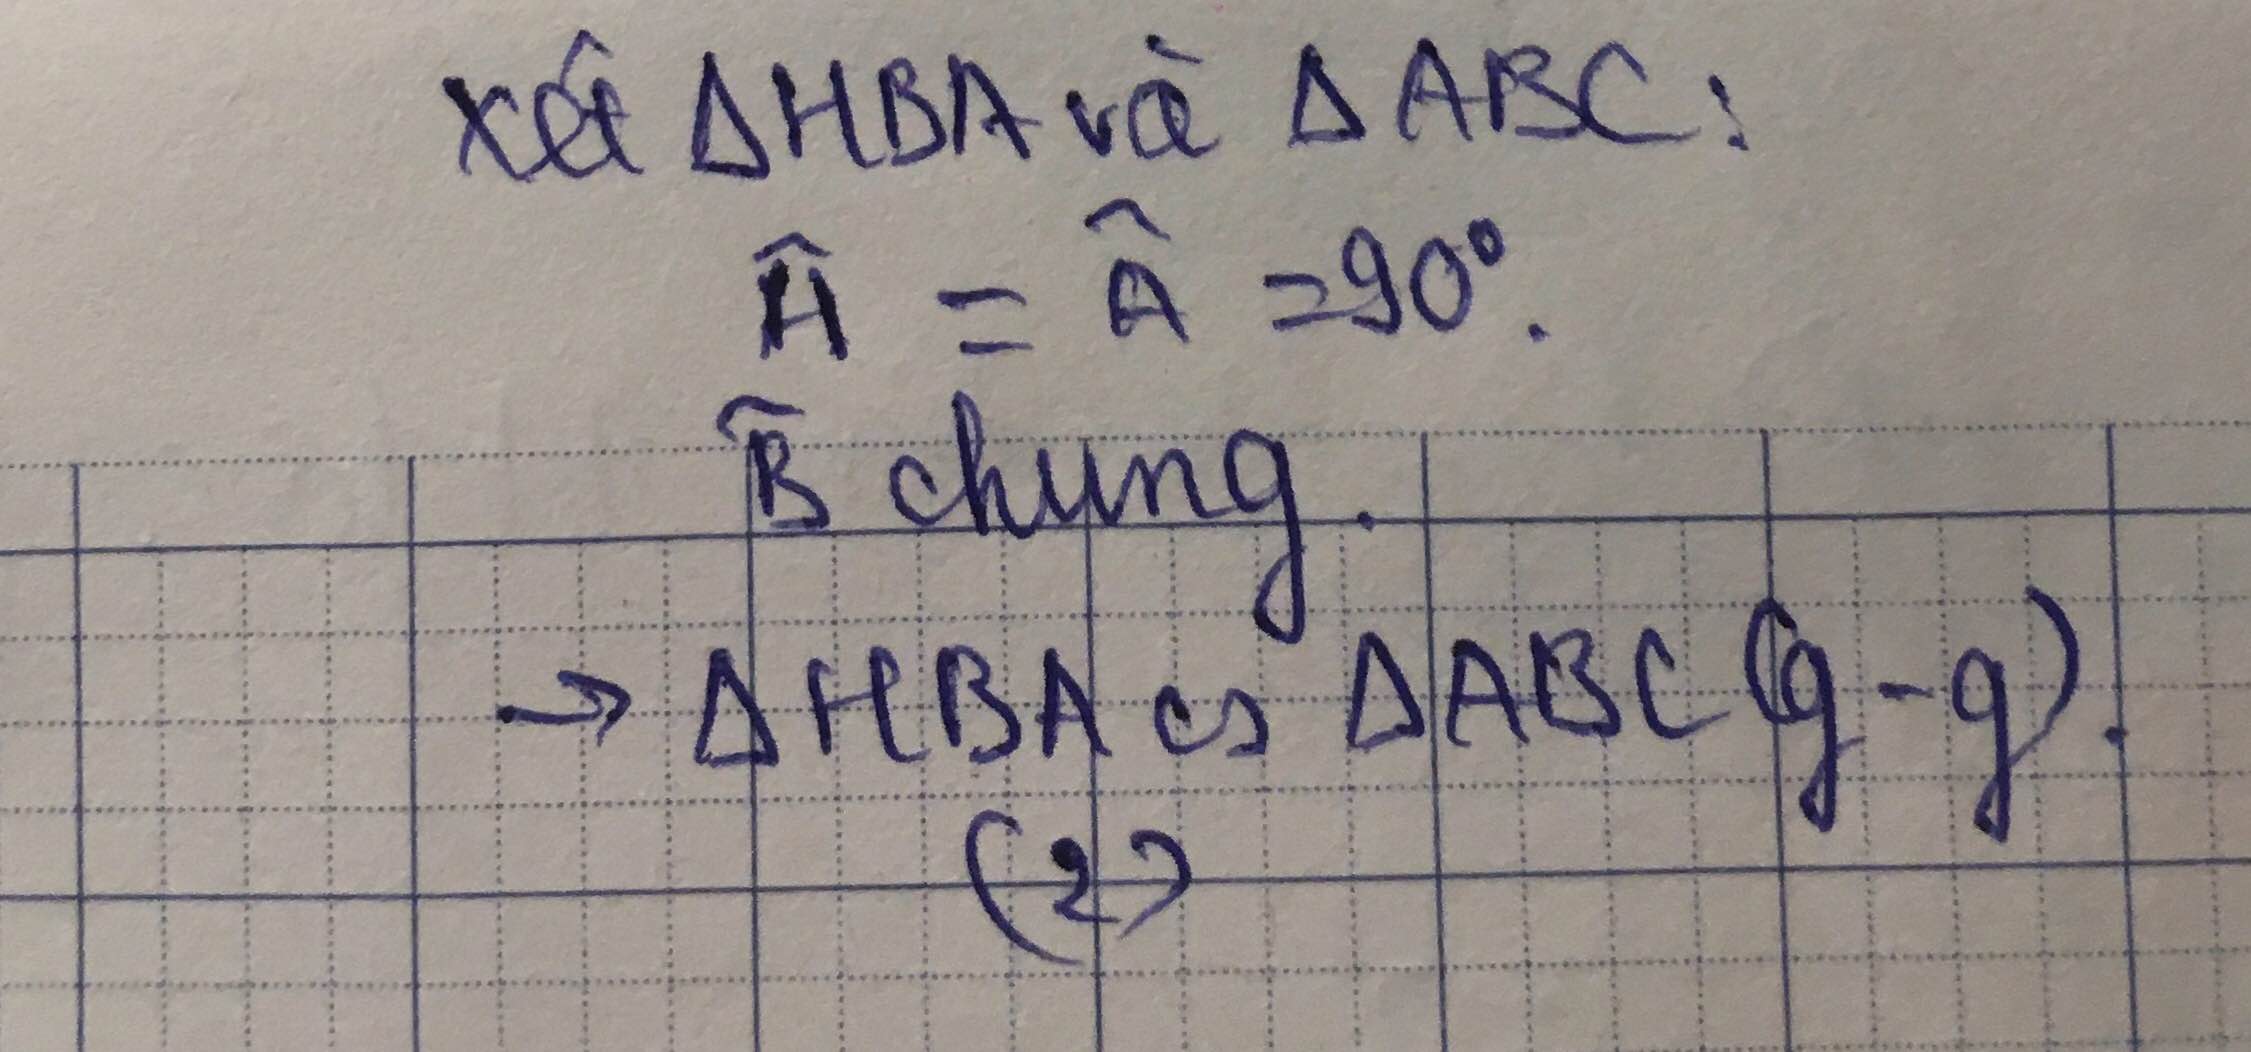 Xét ΔHBA và ΔABC:
Ĥ = Â = 90°.
B̂ chung.
→ ΔHBA ∽ ΔABC (g-g).
(2)